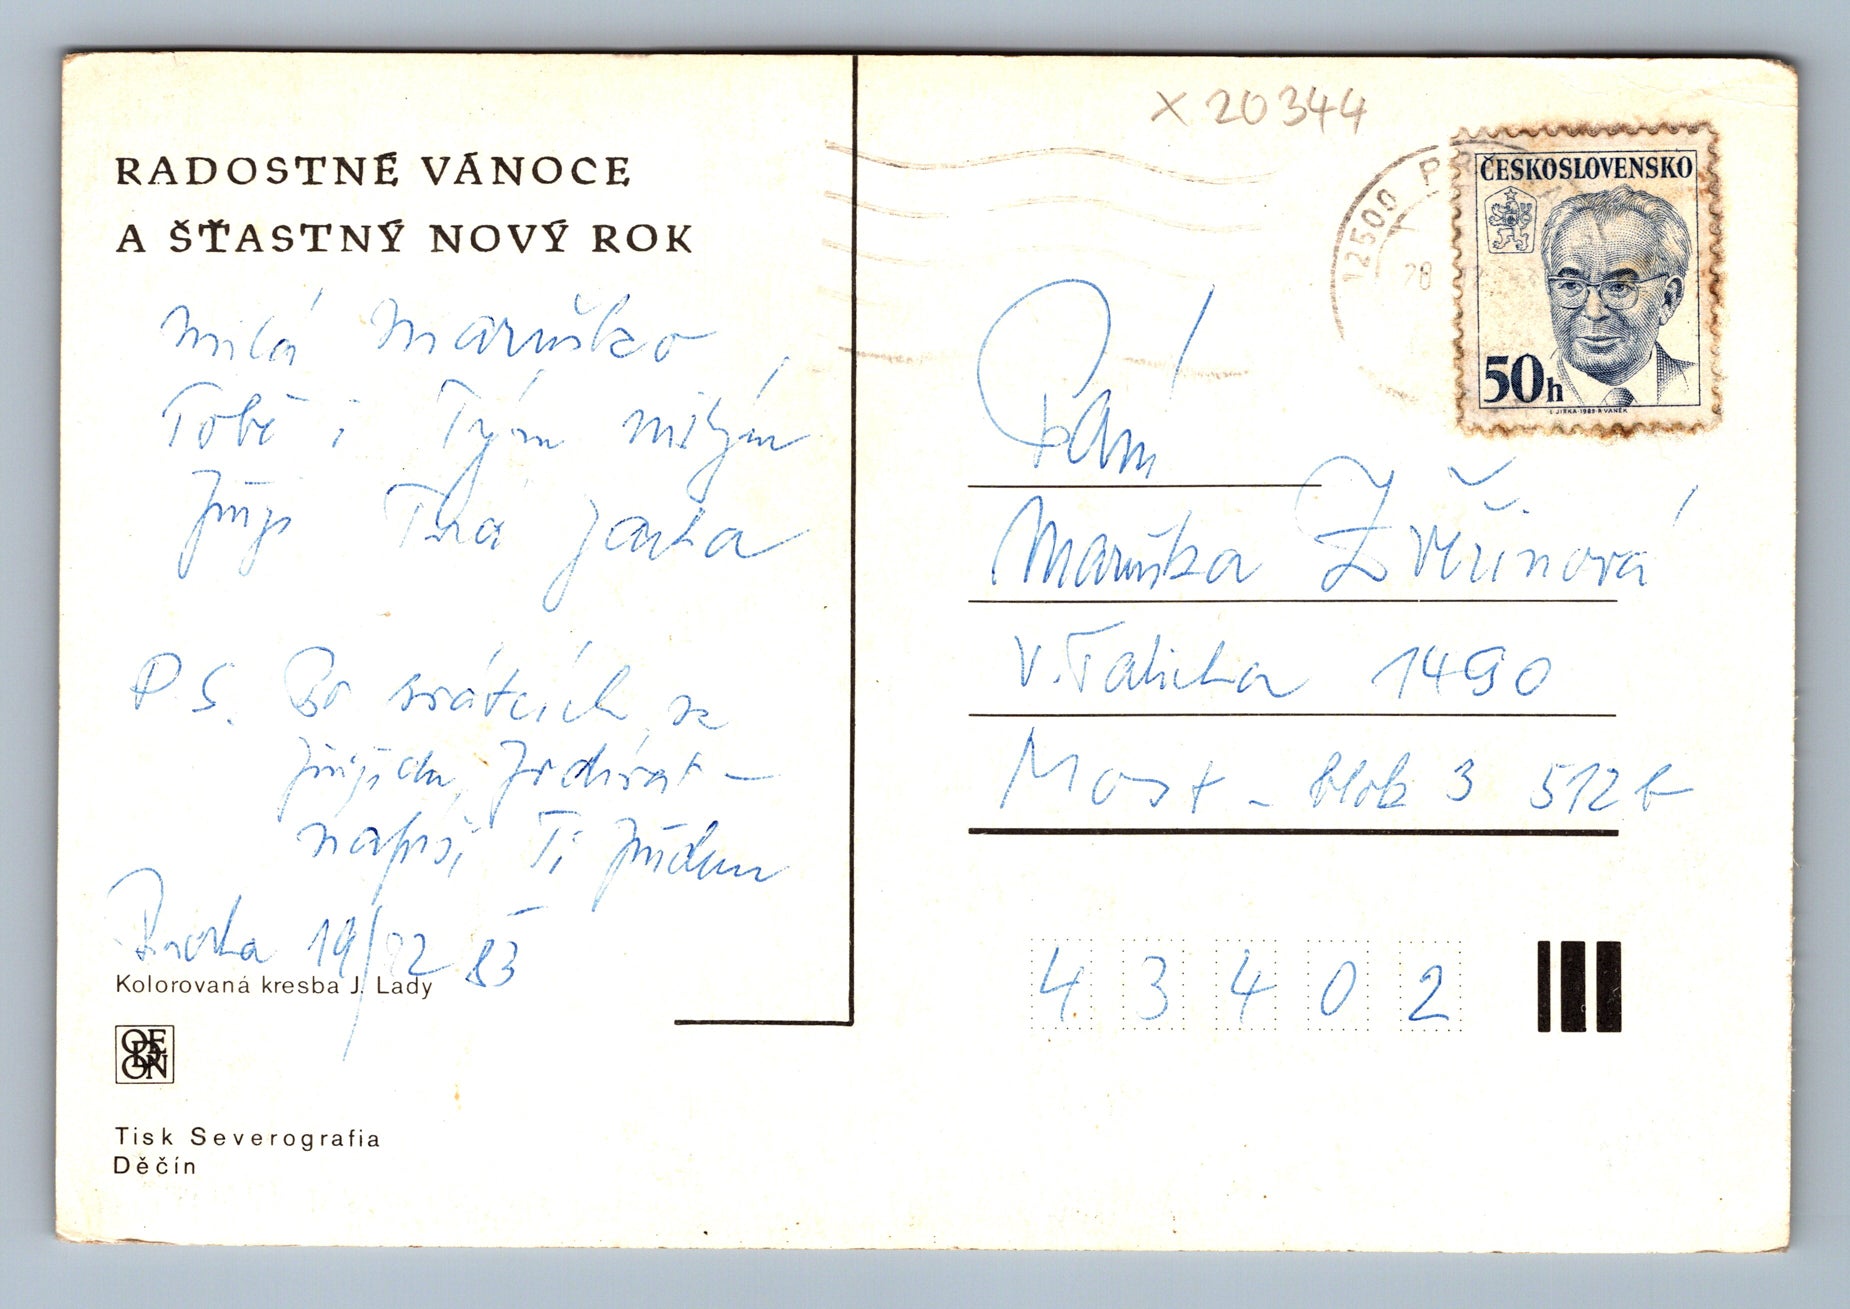 RADOSTNÉ VÁNOCE
A ŠŤASTNÝ NOVÝ ROK
Milá Maruško,
Tobě i Tvým milým
přeje Tvá Jarka
P.S. Po svátcích se
Ti
Praha 19/12 83
Kolorovaná kresba J. Lady
ODEON
Tisk Severografia
Děčín
X 20344
12500 P
28
ČESKOSLOVENSKO
50h
Paní
Maruška Zvěřinová
V. Talicha 1490
Most - blok 3 512 b
43402